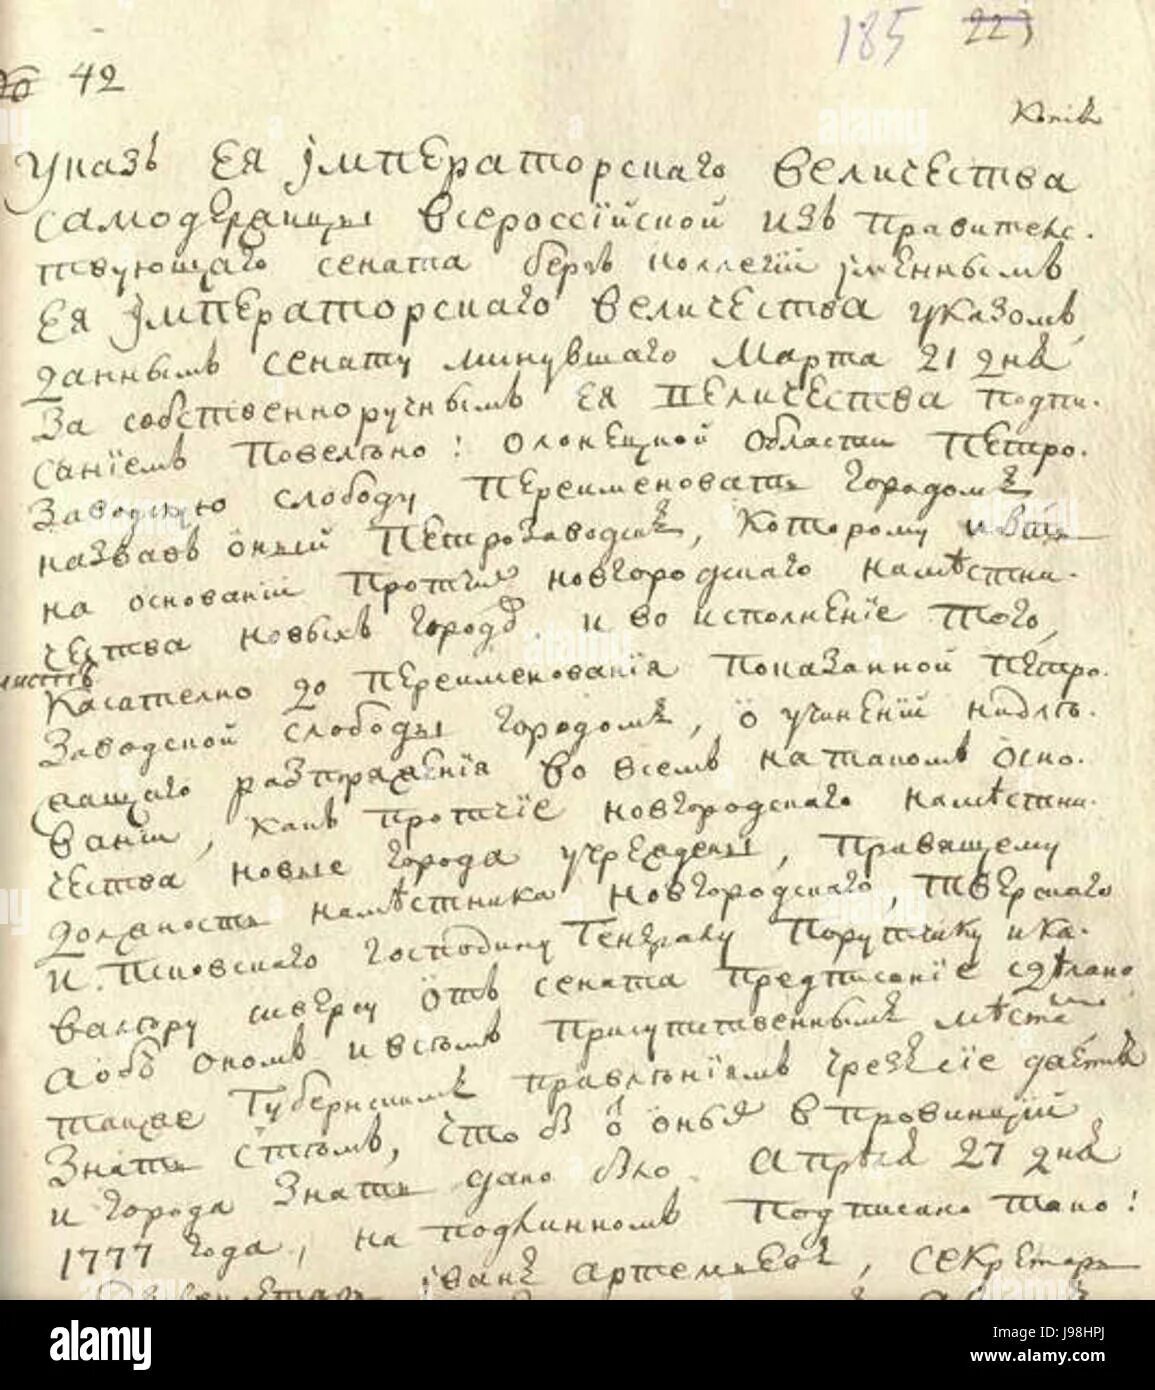 185 223
42
Копия
Указъ ЕЯ ІМПЕРАТОРСКАГО ВЕЛИЧЕСТВА
САМОДЕРЖИЦЫ ВСЕРОССІЙСКОЙ изъ правителс.
твующаго сената бергъ коллегіи имѣннымъ
ЕЯ ІМПЕРАТОРСКАГО ВЕЛИЧЕСТВА указомъ,
даннымъ сенату минувшаго Марта 21 дня
за собственноручнымъ ЕЯ ВЕЛИЧЕСТВА подпи.
саніемъ повелѣно: олонецкой области Петро.
заводскую слободу переименовать городомъ
назвавъ оный Петрозаводскъ, которому и быть
на основаніи протчихъ новгородскаго намѣстни.
чества новыхъ городовъ. и во исполненіе того,
касателно до переименованія показанной Петро.
заводской слободы городомъ, о учиненіи надле.
жащаго разпоряженія во всемъ на такомъ осно.
ваніи, какъ протчіе новгородскаго намѣстни.
чества новые города учреждены, правящему
должность намѣстника новгородскаго, тверскаго
и псковскаго господину Генералу Порутчику и ка.
валеру сиверсу отъ сената предписаніе сдѣлано,
а объ ономъ и всѣмъ присутственнымъ мѣстамъ
также губернскимъ правленіямъ чрезъ сіе даетъ
знать стѣмъ, чтоб о оныя в провинціи
и города знать дано было. Апрѣля 27 дня
1777 года, на подлинномъ подписано тако:
іванъ артемьевъ, секретарь
alamy
Image ID: J98HPJ
www.alamy.com